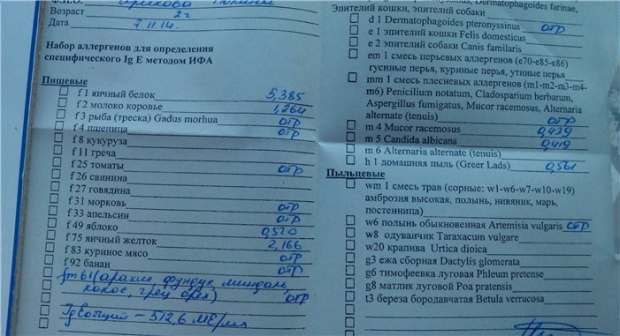 Ф.И.О.
Возраст 2г
Дата 7.11.14.
Набор аллергенов для определения
специфического Ig E методом ИФА
Пищевые
f 1 яичный белок 5,385
f 2 молоко коровье
f 3 рыба (треска) Gadus morhua отр
f 4 пшеница отр
f 8 кукуруза
f 11 греча
f 25 томаты отр
f 26 свинина
f 27 говядина
f 31 морковь отр
f 33 апельсин отр
f 49 яблоко 0,520
f 75 яичный желток 2,166
f 83 куриное мясо отр
f 92 банан отр
fm 61 (арахис фундук миндаль
кокос, грец орех) отр
Ig E общий - 512,6 МЕ/мл
Dermatophagoides farinae,
Эпителий кошки, эпителий собаки
d 1 Dermatophagoides pteronyssinus отр
e 1 эпителий кошки Felis domesticus
e 2 эпителий собаки Canis familaris
em 1 смесь перьевых аллергенов (e70-e85-e86)
гусиные перья, куриные перья, утиные перья
mm 1 смесь плесневых аллергенов (m1-m2-m3-m4-
m6) Penicilium notatum, Cladosparium herbarum,
Aspergillus fumigatus, Mucor racemosus, Alternaria
alternate (tenuis) отр
m 4 Mucor racemosus 0,439
m 5 Candida albicans 0,419
m 6 Alternaria alternate (tenuis)
h 1 домашняя пыль (Greer Lads) 0,561
Пыльцевые
wm 1 смесь трав (сорные: w1-w6-w7-w10-w19)
амброзия высокая, полынь, нивяник, марь,
постенница)
w6 полынь обыкновенная Artemisia vulgaris отр
w8 одуванчик Taraxacum vulgare
w20 крапива Urtica dioica
g3 ежа сборная Dactylis glomerata
g6 тимофеевка луговая Phleum pretense
g8 матлик луговой Poa pratensis
t3 береза бородавчатая Betula verrucosa